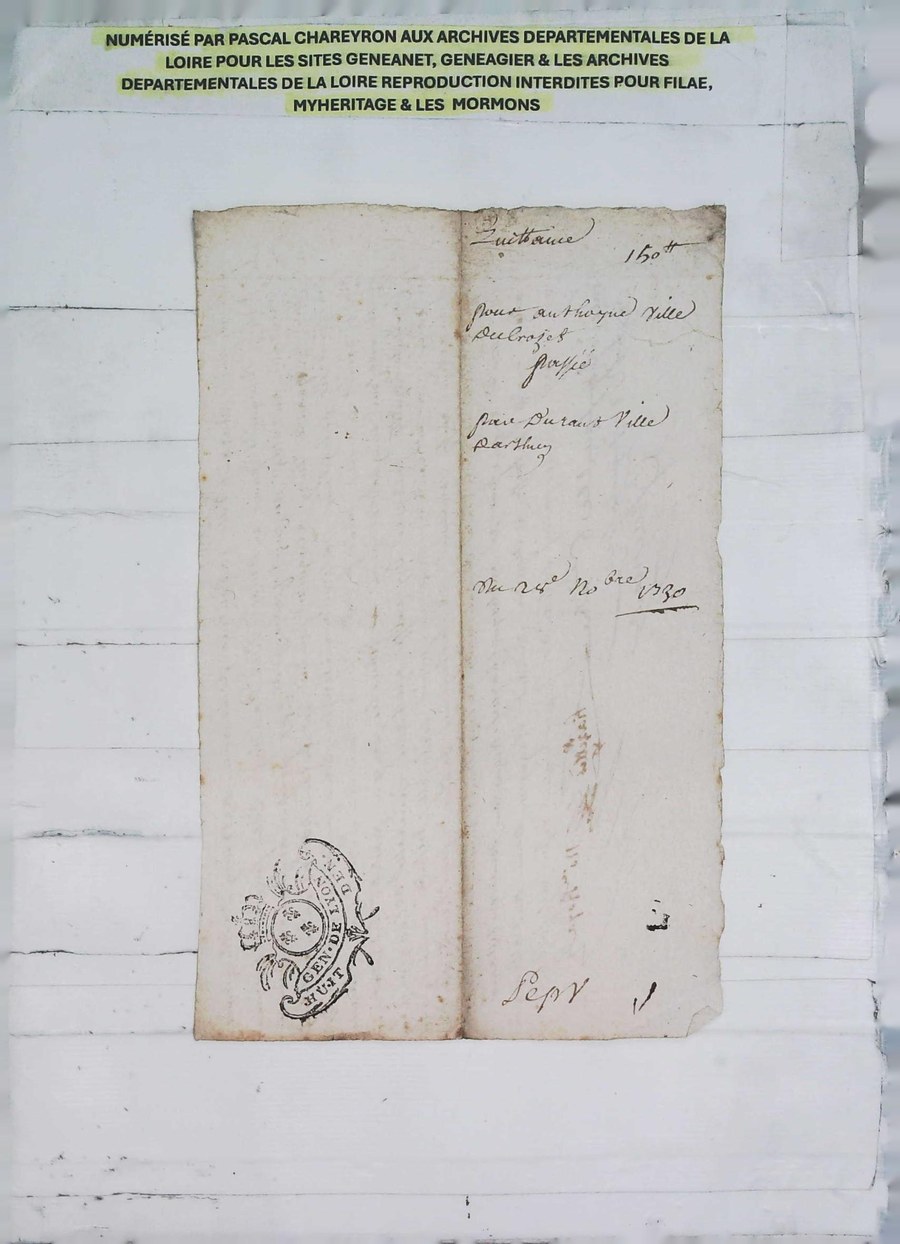 NUMÉRISÉ PAR PASCAL CHAREYRON AUX ARCHIVES DEPARTEMENTALES DE LA
LOIRE POUR LES SITES GENEANET, GENEAGIER & LES ARCHIVES
DEPARTEMENTALES DE LA LOIRE REPRODUCTION INTERDITES POUR FILAE,
MYHERITAGE & LES MORMONS
Quittance
150tt
pour anthoyne Ville
Du Crozet
passée
par Durand Ville
Darthun
Du 28e Nobre 1730
GEN·DE LYON
HUIT DEN·